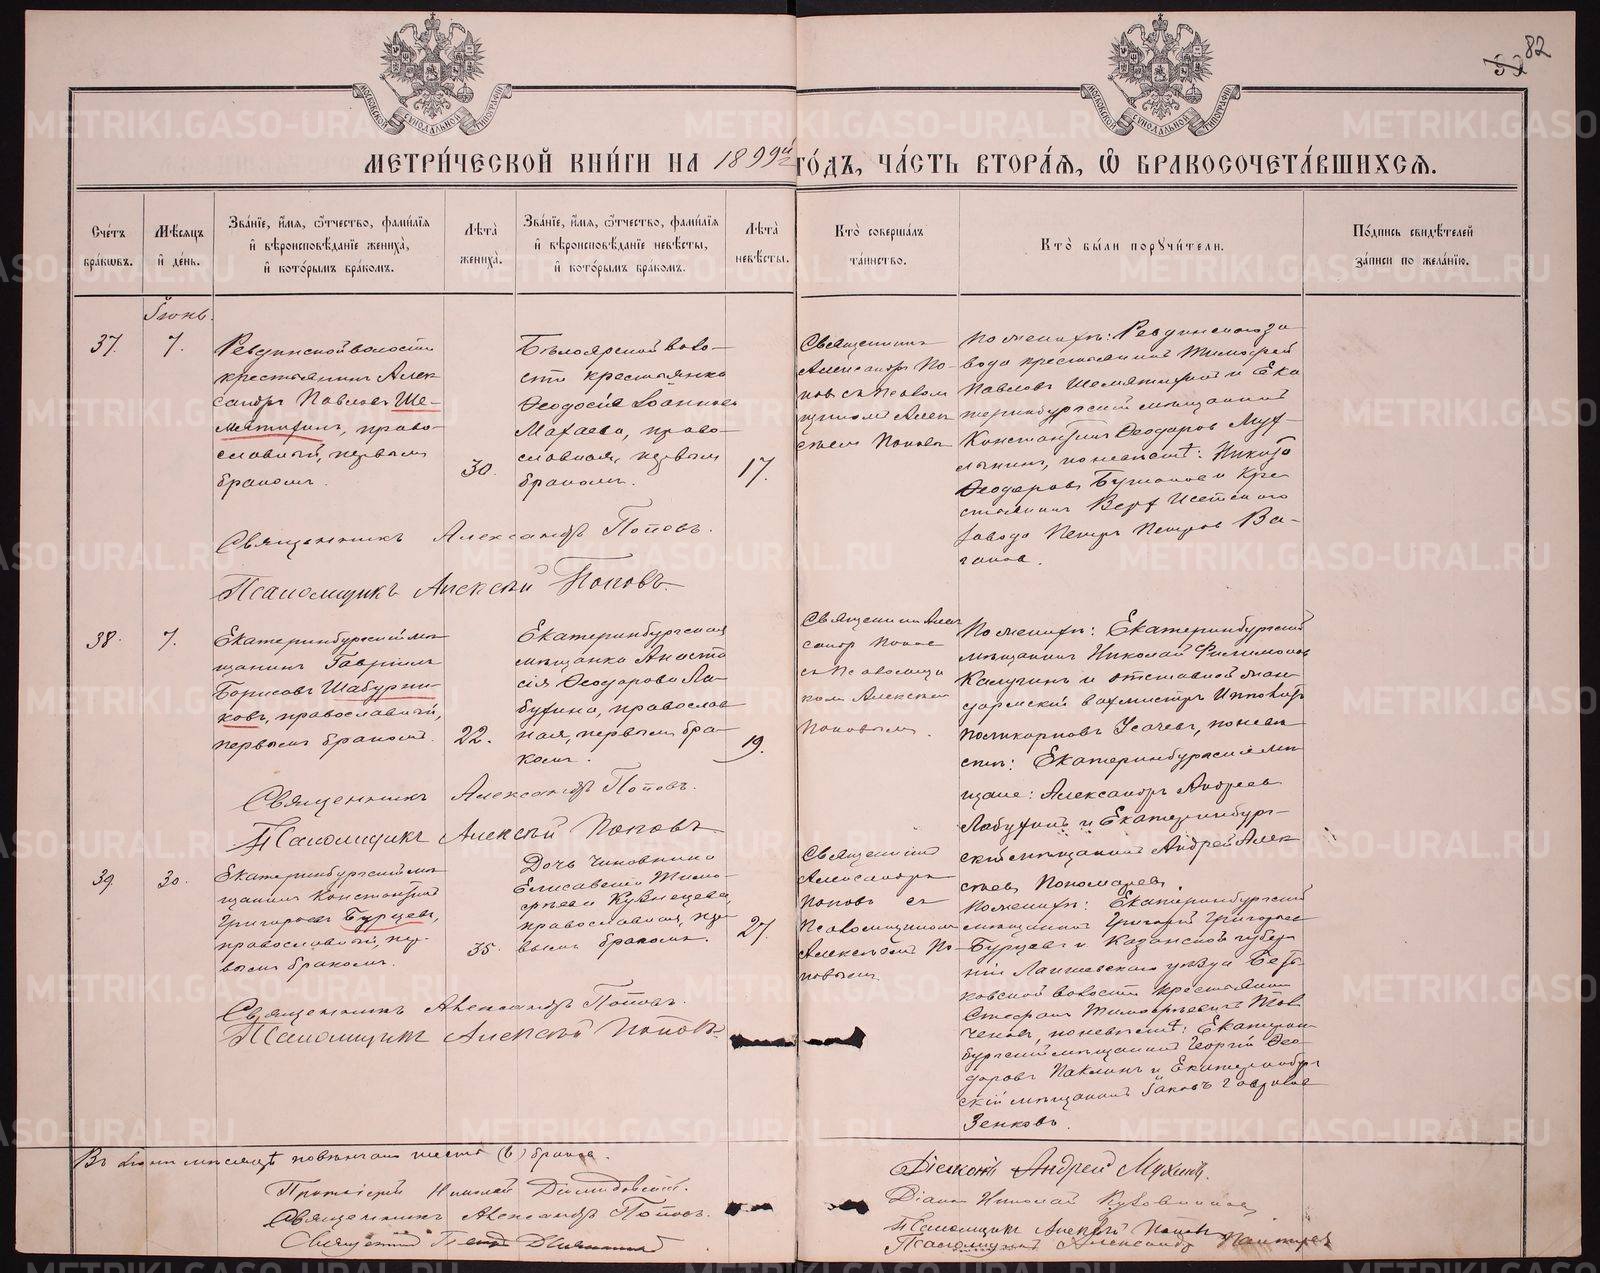 82
МЕТРИ́ЧЕСКОЙ КНИ́ГИ НА 1899й ГО́ДЪ, ЧА́СТЬ ВТОРА́Я, Ѡ БРАКОСОЧЕТА́ВШИХСЯ.
Сче́тъ бра́кѡвъ.
Мѣ́сяцъ и́ день.
Зва́нїе, и́мя, ѻ́тчество, фами́лїя и́ вѣроисповѣ́данїе жениха̀, и́ кото́рымъ бра́комъ.
Лѣ́та жениха̀.
Зва́нїе, и́мя, ѻ́тчество, фами́лїя и́ вѣроисповѣ́данїе невѣ́сты, и́ кото́рымъ бра́комъ.
Лѣ́та невѣ́сты.
Кто̀ соверша́лъ та́инство.
Кто̀ бы́ли порꙋчи́тели.
По́дпись свидѣ́телей за́писи по жела́нїю.
Іюнь.
37.
7.
Ревдинской волости
крестьянинъ Алек
сандръ Павловъ Ше-
мятихинъ, право-
славный, первымъ
бракомъ.
30.
Бѣлоярской воло-
сти крестьянка
Ѳеодосія Іоаннова
Махаева, право-
славная, первымъ
бракомъ.
17.
Священникъ
Александръ По-
повъ съ Псалом
щикомъ Алек
сѣемъ Поповы
По женихѣ: Ревдинскаго за
вода крестьянинъ Тимофей
Павловъ Шемятихинъ и Ека
теринбургскій мѣщанинъ
Константинъ Ѳеодоровъ Мух-
лынинъ, по невѣстѣ: Никита
Ѳеодоровъ и кре
стьянинъ Верх Исетскаго
завода Петръ Петровъ Ва-
гановъ.
Священникъ Александръ Поповъ.
Псаломщикъ Алексѣй Поповъ.
38.
7.
Екатеринбургскій мѣ
щанинъ Гавріилъ
Борисовъ Шабурни-
ковъ, православный,
первымъ бракомъ.
22.
Екатеринбургская
мѣщанка Анаста
сія Ѳеодорова Ла-
бутина, православ
ная, первымъ бра-
комъ.
19.
Священникъ Алек
сандръ Попов
съ Псаломщи
комъ Алексѣем
Поповымъ.
По женихѣ: Екатеринбургскій
мѣщанинъ Николай Филимонов
Калугинъ и отставной жан
дармскій вахмистръ Ипполитъ
Поликарповъ Усачевъ, по невѣ
стѣ: Екатеринбургскіе мѣ
щане: Александръ Андреев
Лабутинъ и Екатеринбург-
скій мѣщанинъ Андрей Алек
сѣевъ Пономаревъ.
Священникъ Александръ Поповъ.
Псаломщикъ Алексѣй Поповъ
39.
30.
Екатеринбургскій мѣ
щанинъ Константинъ
Григорьевъ Бурцевъ,
православный, пер-
вымъ бракомъ.
35.
Дочь чиновника
Елисавета Тимо-
фѣева Кузнецова,
православная, пер
вымъ бракомъ.
27.
Священникъ
Александръ
Поповъ съ
Псаломщикомъ
Алексѣемъ По-
повымъ.
По женихѣ: Екатеринбургскій
мѣщанинъ Григорій Григорьев
Бурцевъ и Казанской губер
ніи Лаишевскаго уѣзда
волости крестьянинъ
Стефанъ Тимофѣевъ
по невѣстѣ: Екатерин-
бургскій мѣщанинъ Георгій Ѳео-
доровъ Паклинъ и Екатеринбург
скій мѣщанинъ Іаковъ Гаврилов
Зенковъ.
Священникъ Александръ Поповъ.
Псаломщикъ Алексѣй Поповъ
Въ Іюнѣ мѣсяцѣ повѣнчано шесть (6) браков.
Протоіерей Николай
Священникъ Александръ Поповъ.
Священникъ
Діаконъ Андрей Мухинъ.
Діаконъ Николай
Псаломщикъ Алексѣй Поповъ
Псаломщикъ Александръ
METRIKI.GASO-URAL.RU